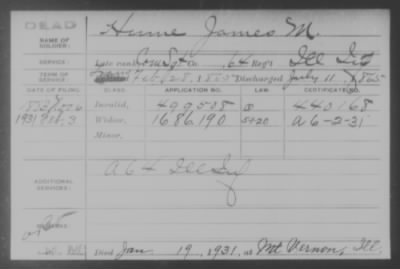 DEAD
NAME OF SOLDIER: Hume James M.
SERVICE: Late rank Com Sgt Co. , 64 Reg't Ill Inf
TERM OF SERVICE: Feb 28, 1865 Discharged July 11, 1865
DATE OF FILING. CLASS. APPLICATION NO. LAW. CERTIFICATE NO.
Invalid, 499508 440168
1931 Feb. 3 Widow, 1686190 5+20 A 6-2-31
Minor,
ADDITIONAL SERVICES: A 64 Ill Inf
REMARKS:
Died Jan 19, 1931, at Mt Vernon, Ill.